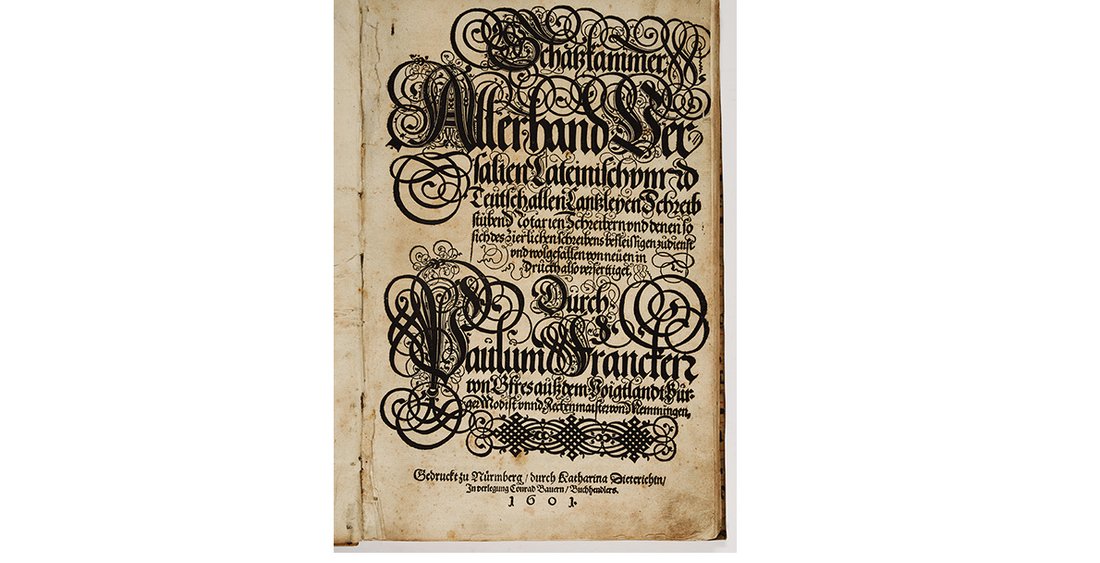 Schatzkammer
Allerhand Ver
salien Lateinisch vnnd
Teütsch allen Cantzleyen Schreib
stüben Notarien Schreibern vnd denen so
sich des zierlichen schreibens befleissigen zü dienst
vnd wolgefallen von neüen in
Drückh also verferttiget.
Dürch
Paülum Francken
von Gfres aüß dem Voigtlandt Bür-
ger Modist vnnd Rechenmaister von Memmingen,
Gedruckt zu Nürmberg / durch Katharina Dieterichin /
In verlegung Conrad Bauern / Buchhendlers.
1601.